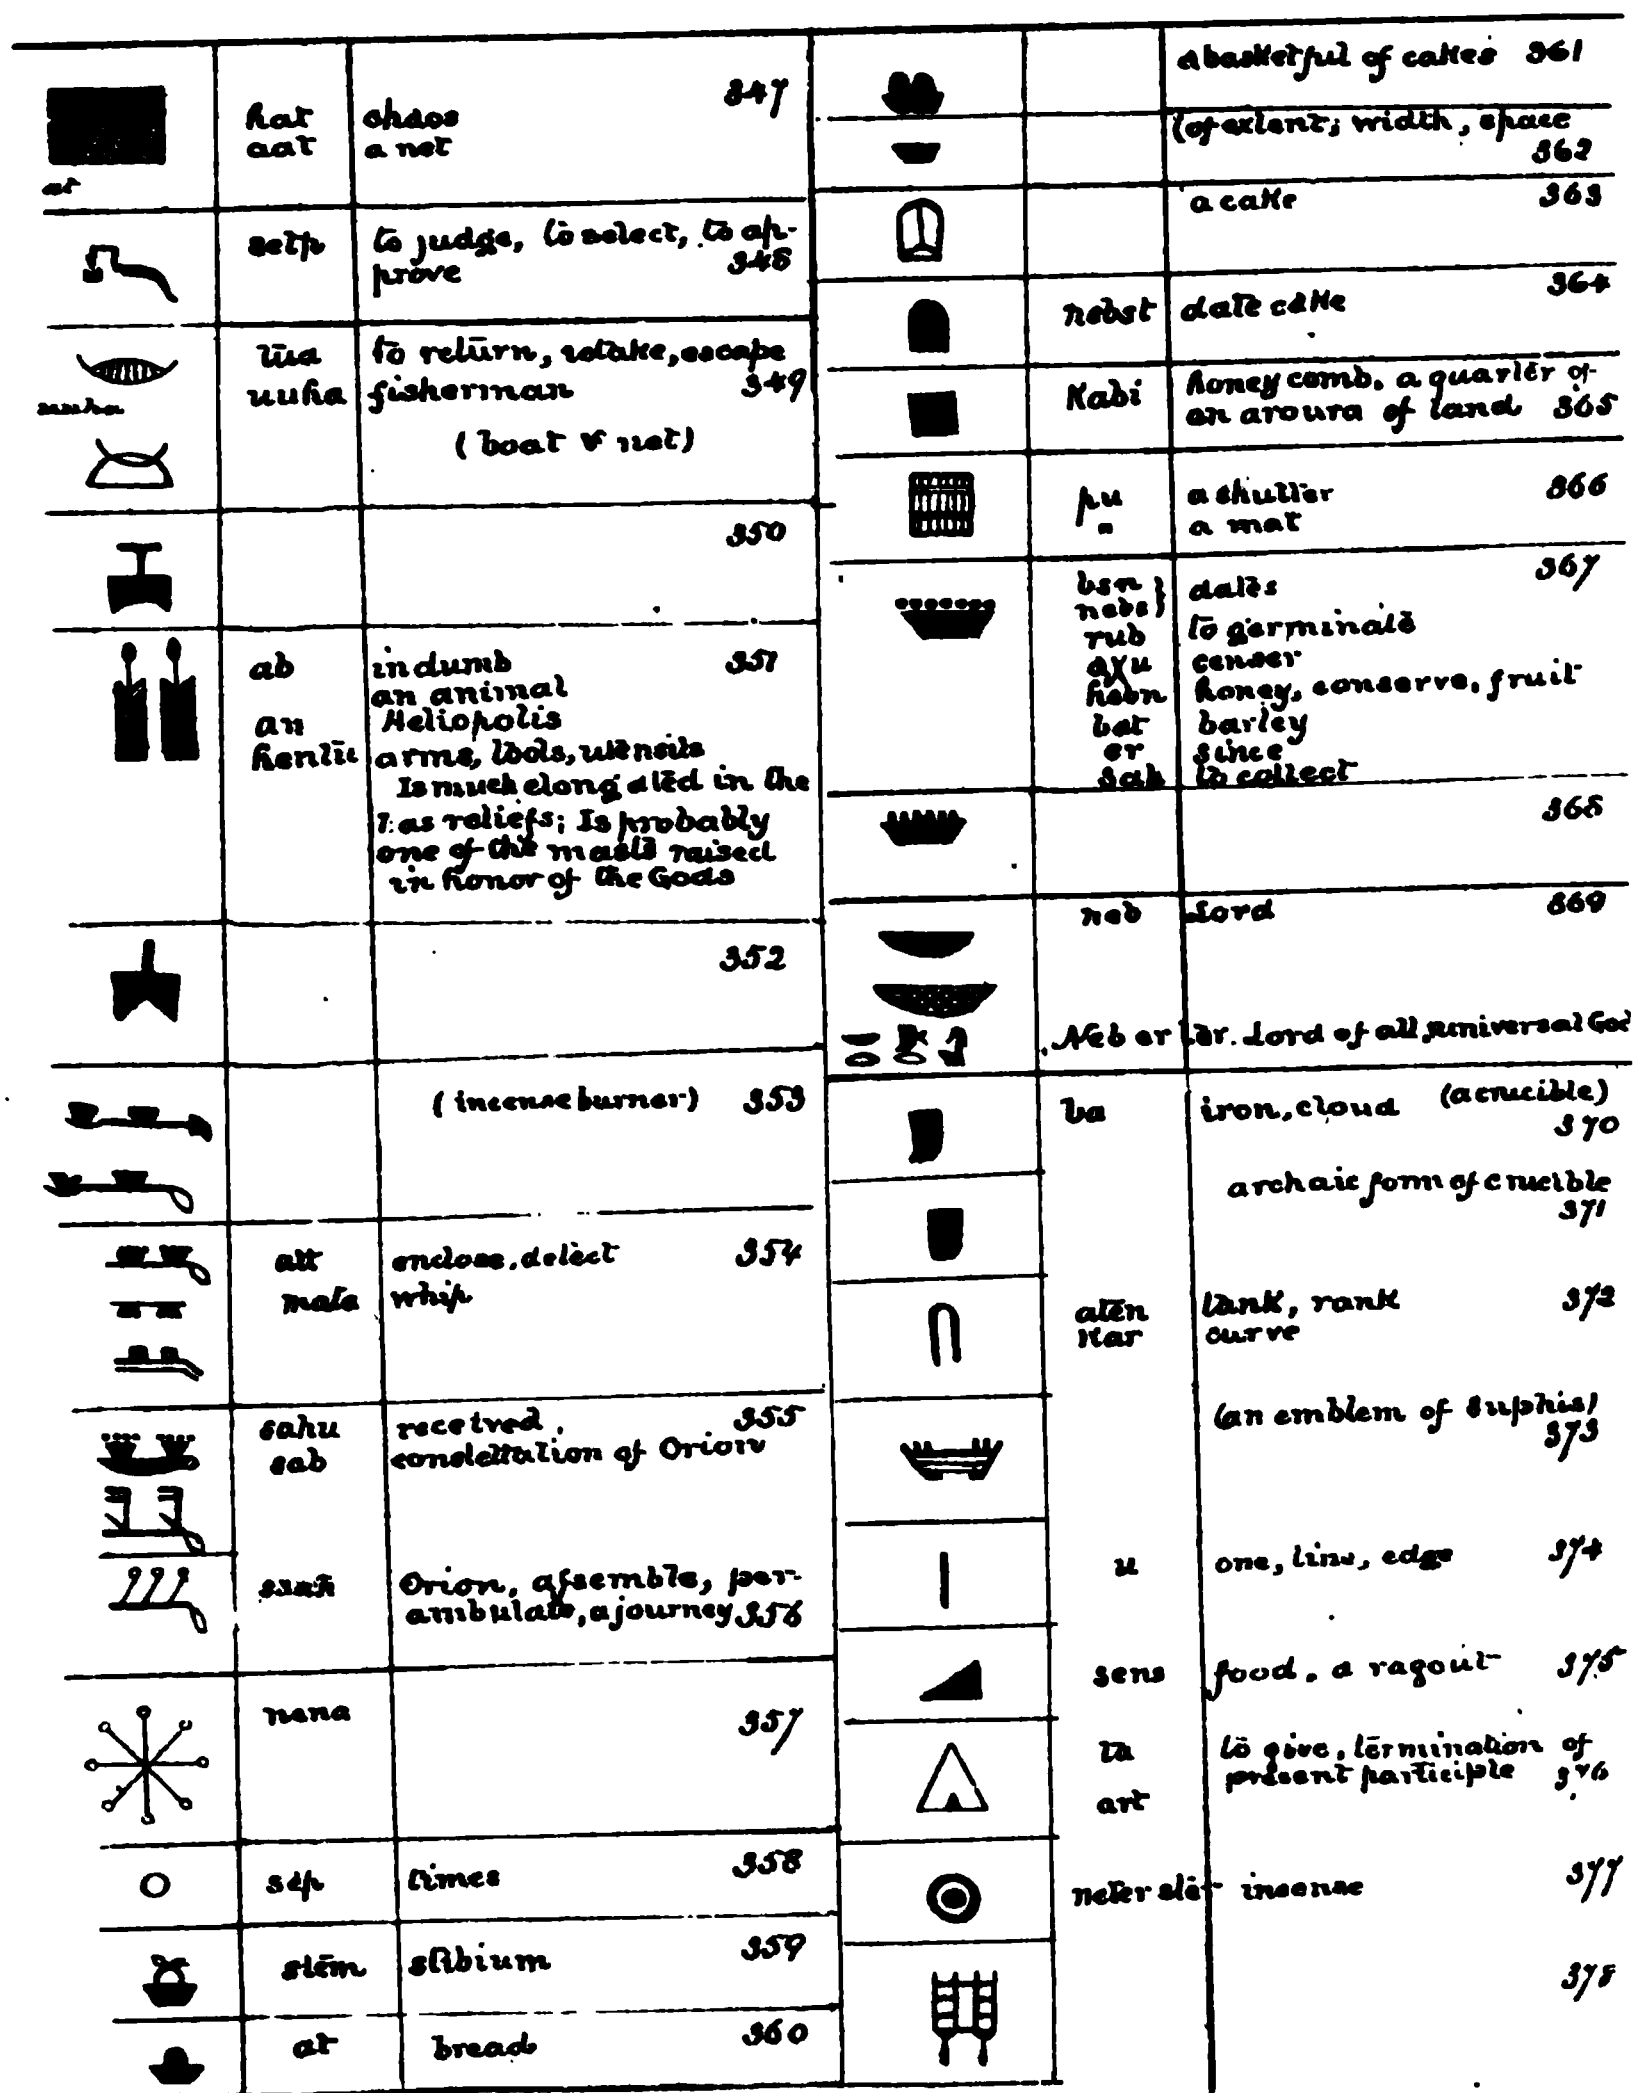 hat chaos 347
aat a net
at
setp to judge, to select, to ap-
prove 348
to return, retake, escape
uuha fisherman 349
(boat & net)
350
ab in dumb 351
an animal
an Heliopolis
arms, tools, utensils
Is much elongated in the
bas reliefs; Is probably
one of the masts raised
in honor of the Gods
352
(incense burner) 353
att enclose, detect 354
mata whip
sahu received, 355
sab constellation of Orion
Orion, assemble, per-
ambulate, a journey 356
nena 357
sep times 358
stem stibium 359
at bread 360
a basketful of cakes 361
(of extent; width, space
362
a cake 363
nebst date cake 364
Kabi honey comb, a quarter of
an aroura of land 365
pu a shutter 366
" a mat
367
bsn } dates
nebs }
rub to germinate
aχu censer
honey, conserve, fruit
bat barley
er since
sah to collect
368
neb Lord 369
Neb er ter. Lord of all, universal God
ba iron, cloud (a crucible)
370
archaic form of crucible
371
aten tank, rank 372
Kar curve
(an emblem of Suphis)
373
u one, line, edge 374
sens food, a ragout 375
ta to give, termination of
present participle 376
art
neter incense 377
378